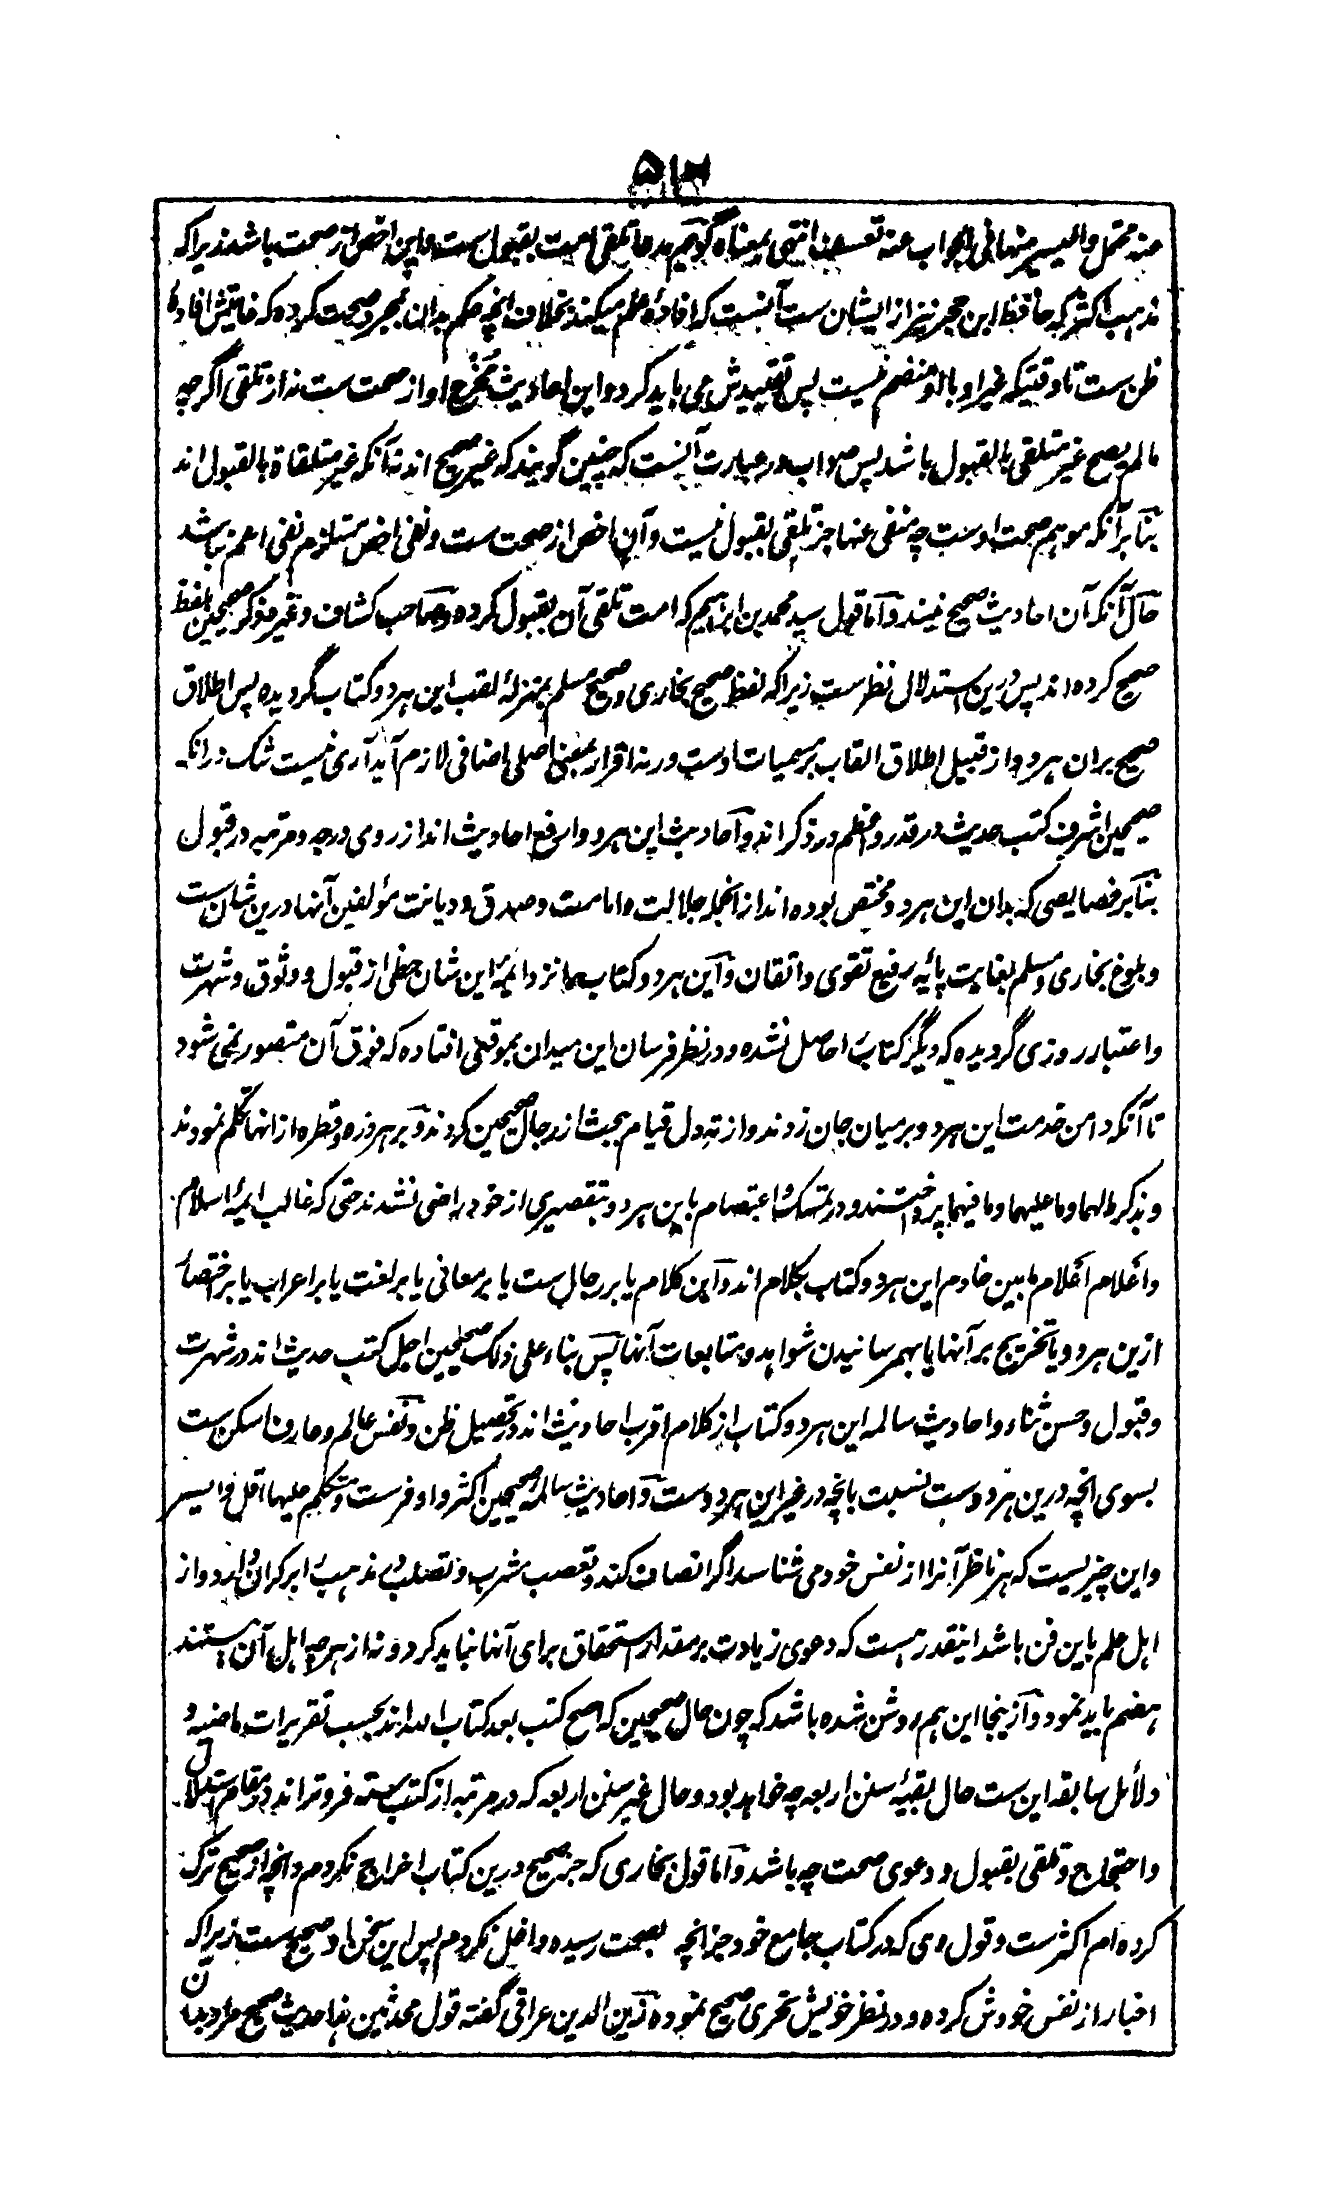 ۵۱۲
عنه محتمل والیسیر منها فی الجواب عنه تعسف انتهی بمعناه گویم مدعا تلقی امت بقبول ست و این اخص از صحت باشد زیرا که
مذهب اکثر که حافظ ابن حجر نیز از ایشان ست آنست که افاده علم میکند بخلاف انچه حکم بران بمجرد صحت کرده که غایتش افاده
ظن ست تا وقتیکه غیر او با او منضم نیست پس تقییدش می باید کرد و این احادیث مخرج او از صحت ست نه از تلقی اگرچه
ما لم یصح غیر متلقی بالقبول باشد پس صواب در عبارت آنست که چنین گویند که غیر صحیح اند نه آنکه غیر متلقاة بالقبول اند
بنابر آنکه موهم صحت اوست چه منفی عنها جز تلقی بقبول نیست و آن اخص از صحت ست و نفی اخص مستلزم نفی اعم نباشد
حال آنکه آن احادیث صحیح نیند و اما قول سید محمد بن ابراهیم که امت تلقی آن بقبول کرده و صاحب کشاف و غیره ذکر صحیحین بلفظ
صحیح کرده اند پس درین استدلال نظر ست زیرا که لفظ صحیح بخاری و صحیح مسلم بمنزلهٔ لقب این هر دو کتاب گردیده پس اطلاق
صحیح بران هر دو از قبیل اطلاق القاب بر مسمیات اوست ورنه اقرار بمعنی اصلی اضافی لازم آید آری نیست شک درانکه
صحیحین اشرف کتب حدیث در قدر و اعظم در ذکر اند و احادیث این هر دو ارفع احادیث اند از روی درجه و مرتبه در قبول
بنابر خصایصی که بدان این هر دو مختص بوده اند از انجمله جلالت و امامت و صدق و دیانت مؤلفین آنها درین شان ست
و بلوغ بخاری و مسلم بغایت پایه رفیع تقوی و اتقان و این هر دو کتاب را نزد ایمهٔ این شان حظی از قبول و وثوق و شهرت
و اعتبار روزی گردیده که دیگر کتاب را حاصل نشده و در نظر فرسان این میدان بموقعی افتاده که فوق آن متصور نمی شود
تا آنکه دامن خدمت این هر دو بر میان جان زدند و از ته دل قیام ببحث از رجال صحیحین کردند و بر هر ذره و قطره از انها تکلم نمودند
و بذکر ما لهما و ما علیهما و ما فیهما پرداختند و در تمسک و اعتصام باین هر دو بتقصیری از خود راضی نشدند حتی که غالب ایمهٔ اسلام
و اعلام اعلام ما بین خادم این هر دو کتاب بکلام اند و این کلام یا بر رجال ست یا بر معانی یا بر لغت یا بر اعراب یا بر اختصار
ازین هر دو یا تخریج بر آنها یا بهم رسانیدن شواهد و متابعات آنها پس بناء علی ذلک صحیحین اجل کتب حدیث اند در شهرت
و قبول و حسن ثناء و احادیث سالمه این هر دو کتاب از کلام اقرب احادیث اند در تحصیل ظن و نفس عالم و عارف اسکن ست
بسوی انچه درین هر دو ست نسبت بانچه در غیر این هر دو ست و احادیث سالمهٔ صحیحین اکثر و اوفر ست و متکلم علیها اقل و ایسر
و این چیزیست که هر ناظر آنرا از نفس خود می شناسد اگر انصاف کند و تعصب مشرب و تصلب مذهب را بر کران دارد و از
اهل علم باین فن باشد اینقدر هست که دعوی زیادت بر مقدار استحقاق برای آنها نباید کرد و نه از هر چه اهل آن هستند
هضم باید نمود و ازینجا این هم روشن شده باشد که چون حال صحیحین که اصح کتب بعد کتاب الله اند بحسب تقریرات ماضیه و
دلائل سابقه این ست حال بقیهٔ سنن اربعه چه خواهد بود و حال غیر سنن اربعه که در مرتبه از کتب سته فروتر اند در مقام استدلال
و احتجاج و تلقی بقبول و دعوی صحت چه باشد و اما قول بخاری که جز صحیح درین کتاب اخراج نکردم و انچه از صحیح ترک
کرده ام اکثر ست و قول وی که در کتاب جامع خود جز انچه بصحت رسیده داخل نکردم پس این سخن او صحیح ست زیرا که
اخبار از نفس خودش کرده و در نظر خویش تحری صحیح نموده زین الدین عراقی گفته قول محدثین هذا حدیث صحیح مراد بدان